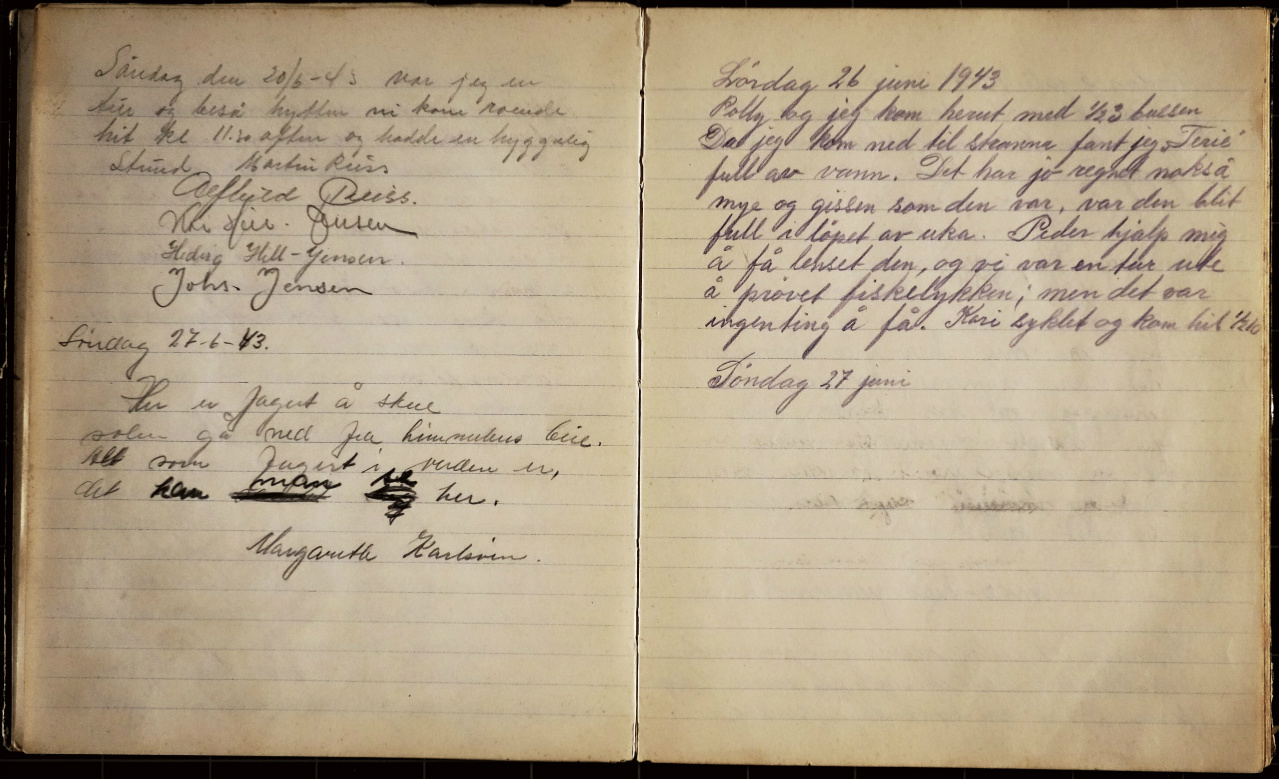 Söndag den 20/6-43 var jeg en
tur og beså hytten vi kom roende
hit kl 11.30 aften og hadde en hyggelig
stund Martin Reiss
Alfhild Reiss.
Jensen
Hedvig Hell-Jensen.
Johs. Jensen
Söndag 27-6-43.
Her er fagert å skue
solen gå ned fra himmelens bue.
Alt som fagert i verden er,
det kan man se her.
Margareth Karlsven.
Lördag 26 juni 1943
Polly og jeg kom herut med 1/2 3 bussen
Da jeg kom ned til stranna fant jeg "Terje"
full av vann. Det har jo regnet nokså
mye og gissen som den var, var den blit
full i löpet av uka. Peder hjalp mig
å få lenset den, og vi var en tur ute
å prövet fiskelykken; men det var
ingenting å få. Kari syklet og kom hit 1/2 10
Söndag 27 juni